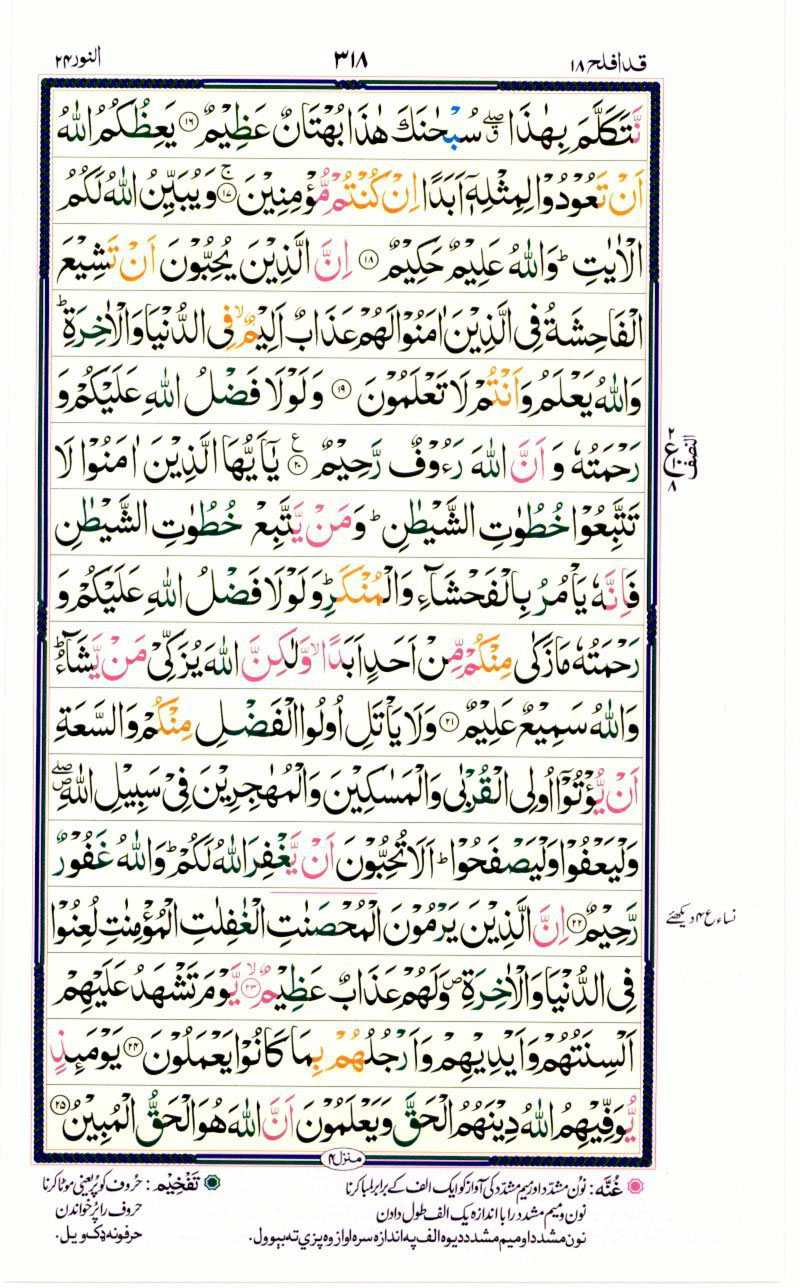 قد افلح ۱۸
۳۱۸
النور ۲۴
نَّتَكَلَّمَ بِهٰذَا ۖۗ سُبْحٰنَكَ هٰذَا بُهْتَانٌ عَظِيْمٌ ۝۱۶ يَعِظُكُمُ اللّٰهُ
اَنْ تَعُوْدُوْا لِمِثْلِهٖٓ اَبَدًا اِنْ كُنْتُمْ مُّؤْمِنِيْنَ ۝۱۷ۚ وَيُبَيِّنُ اللّٰهُ لَكُمُ
الْاٰيٰتِ ؕ وَاللّٰهُ عَلِيْمٌ حَكِيْمٌ ۝۱۸ اِنَّ الَّذِيْنَ يُحِبُّوْنَ اَنْ تَشِيْعَ
الْفَاحِشَةُ فِى الَّذِيْنَ اٰمَنُوْا لَهُمْ عَذَابٌ اَلِيْمٌ ۙ فِى الدُّنْيَا وَالْاٰخِرَةِ ؕ
وَاللّٰهُ يَعْلَمُ وَاَنْتُمْ لَا تَعْلَمُوْنَ ۝۱۹ وَلَوْلَا فَضْلُ اللّٰهِ عَلَيْكُمْ وَ
رَحْمَتُهٗ وَ اَنَّ اللّٰهَ رَءُوْفٌ رَّحِيْمٌ ۝۲۰ع يٰٓاَيُّهَا الَّذِيْنَ اٰمَنُوْا لَا
النصف
۲
ع
۱۰
۸
تَتَّبِعُوْا خُطُوٰتِ الشَّيْطٰنِ ؕ وَمَنْ يَّتَّبِعْ خُطُوٰتِ الشَّيْطٰنِ
فَاِنَّهٗ يَاْمُرُ بِالْفَحْشَآءِ وَالْمُنْكَرِ ؕ وَلَوْلَا فَضْلُ اللّٰهِ عَلَيْكُمْ وَ
رَحْمَتُهٗ مَا زَكٰى مِنْكُمْ مِّنْ اَحَدٍ اَبَدًا ۙ وَّلٰكِنَّ اللّٰهَ يُزَكِّىْ مَنْ يَّشَآءُ ؕ
وَاللّٰهُ سَمِيْعٌ عَلِيْمٌ ۝۲۱ وَلَا يَاْتَلِ اُولُوا الْفَضْلِ مِنْكُمْ وَالسَّعَةِ
اَنْ يُّؤْتُوْٓا اُولِى الْقُرْبٰى وَالْمَسٰكِيْنَ وَالْمُهٰجِرِيْنَ فِىْ سَبِيْلِ اللّٰهِ ۖ
وَلْيَعْفُوْا وَلْيَصْفَحُوْا ؕ اَلَا تُحِبُّوْنَ اَنْ يَّغْفِرَ اللّٰهُ لَكُمْ ؕ وَاللّٰهُ غَفُوْرٌ
رَّحِيْمٌ ۝۲۲ اِنَّ الَّذِيْنَ يَرْمُوْنَ الْمُحْصَنٰتِ الْغٰفِلٰتِ الْمُؤْمِنٰتِ لُعِنُوْا
نساء ع ۴ دیکھئے
فِى الدُّنْيَا وَالْاٰخِرَةِ ۪ وَلَهُمْ عَذَابٌ عَظِيْمٌ ۝۲۳ۙ يَّوْمَ تَشْهَدُ عَلَيْهِمْ
اَلْسِنَتُهُمْ وَاَيْدِيْهِمْ وَاَرْجُلُهُمْ بِمَا كَانُوْا يَعْمَلُوْنَ ۝۲۴ يَوْمَئِذٍ
يُّوَفِّيْهِمُ اللّٰهُ دِيْنَهُمُ الْحَقَّ وَيَعْلَمُوْنَ اَنَّ اللّٰهَ هُوَ الْحَقُّ الْمُبِيْنُ ۝۲۵
منزل ۴
غُنّه : نون مشدّد اور میم مشدّد کی آواز کو ایک الف کے برابر لمبا کرنا
نون و میم مشدد را با اندازہ یک الف طول دادن
نون مشدد او میم مشدد دیوه الف په اندازه سره اواز وه پزي ته بېوول.
تَفْخِيْم : حروف کو پُر یعنی موٹا کرنا
حروف را پُر خواندن
حرفونه ډک ویل.